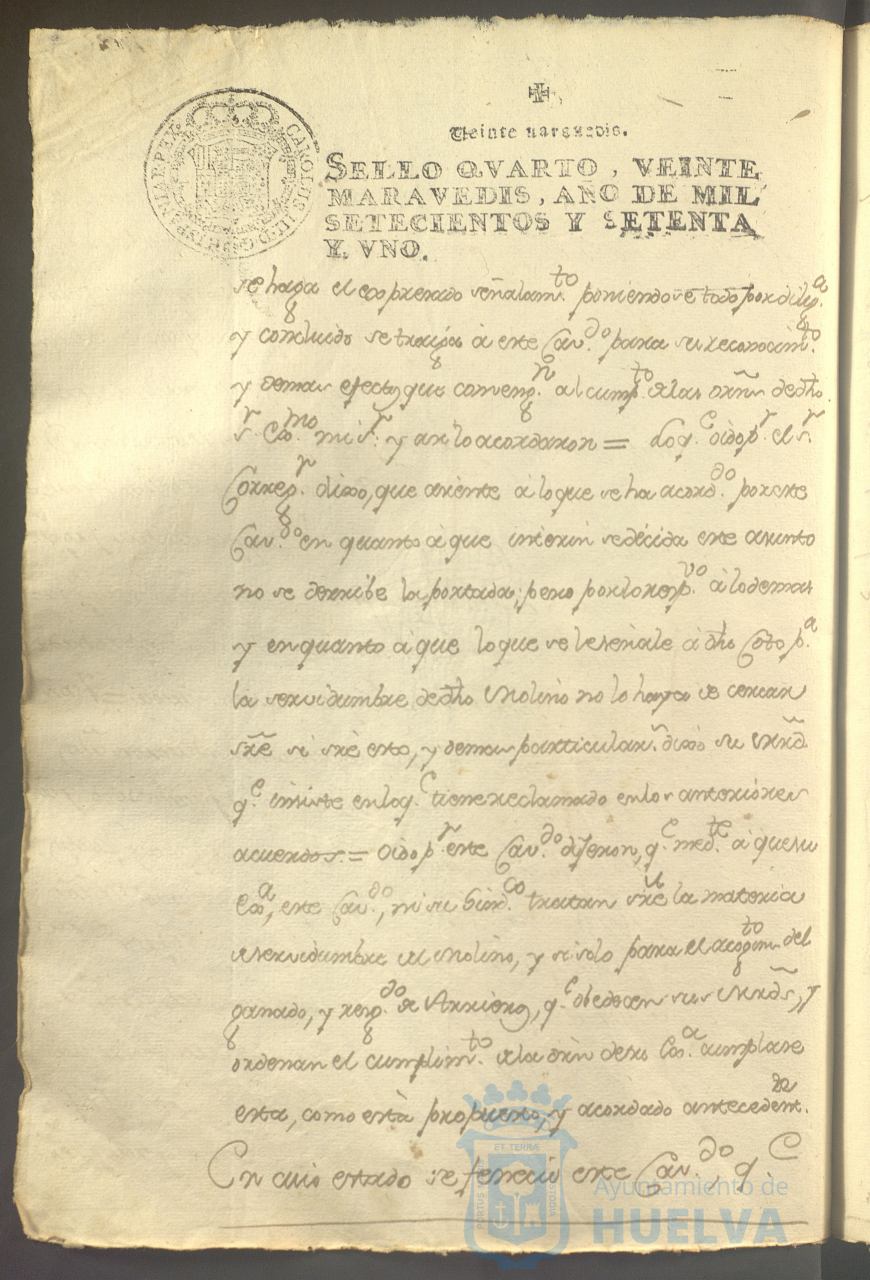 CAROLUS III D G HISPANIAR REX
Veinte maravedis.
SELLO QVARTO, VEINTE
MARAVEDIS, AÑO DE MIL
SETECIENTOS Y SETENTA
Y VNO.
se haga el expresado señalam.to poniendose todo por dilig.a
y concluido se traiga à este Cav.do para su reconocim.to
y demas efectos que conveng.n al cump.to de las orñs de dho.
s.r Exc.mo mi s.r y asi lo acordaron = Lo q.e oido p.r el s.r
Correg.r dixo, que asiente à lo que se ha acord.do por este
Cav.do en quanto à que interin se decida este asunto
no se derribe la portada; pero por lo resp.vo à lo demas
y en quanto à que lo que se le señale à dho Coto p.a
la servidumbre de dho Molino no lo haya de cercar
sre si sre esto, y demas particular.s dixo su Mrd.
q.e insiste en lo q.e tiene reclamado en los anteriores
acuerdos = Oido p.r este Cav.do dijeron, q.e med.te à que su
Ex.a, este Cav.do, ni su tratan sre la materia
de servidumbre del Molino, y si solo para el acogim.to del
ganado, y resg.do de q.e obedecen sus Mrds, y
ordenan el cumplim.to de la orñ de su Ex.a cumplase
esta, como està propuesto, y acordado antecedent.te
En cuio estado se feneciò este Cav.do, q.e
ET TERRAE
PORTUS
CUSTODIA
Ayuntamiento de
HUELVA